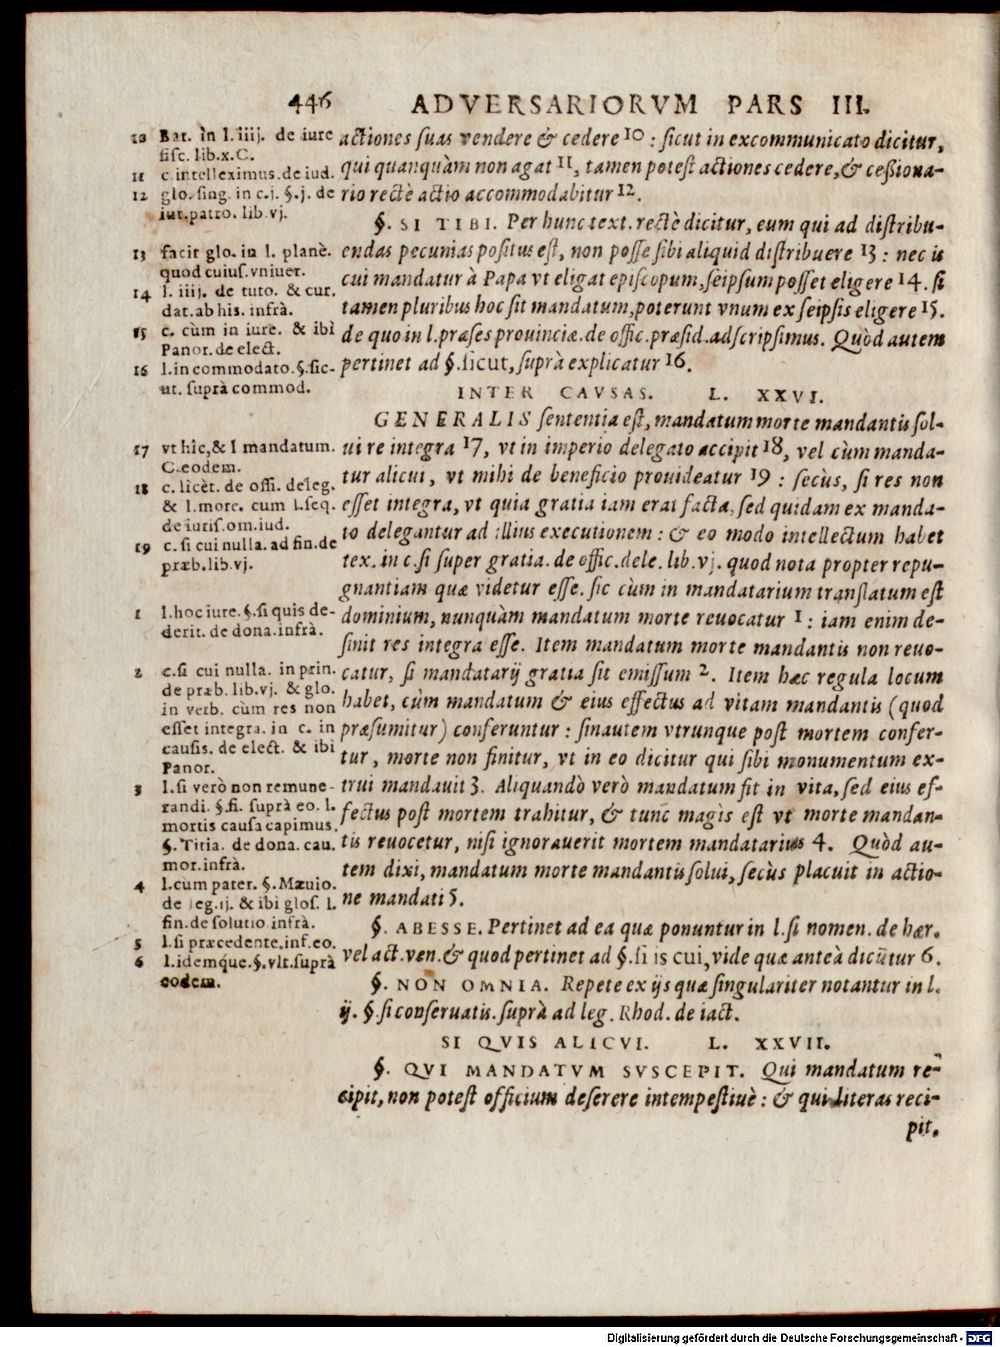 446 ADVERSARIORVM PARS III.
10 Bar. in l. iiij. de iure
fisc. lib.x.C.
11 c. intelleximus. de iud.
12 glo. sing. in c.j. §.j. de
iur. patro. lib. vj.
13 facit glo. in l. planè.
quod cuius. vniuer.
14 l. iiij. de tuto. & cur.
dat. ab his. infrà.
15 c. cùm in iure. & ibi
Panor. de elect.
16 l. in commodato. §. sic-
ut. suprà commod.
17 vt hîc, & l mandatum.
C. eodem.
18 c. licèt. de offi. deleg.
& l. more. cum l. seq.
de iuris. om. iud.
19 c. si cui nulla. ad fin. de
præb. lib. vj.
1 l. hoc iure. §. si quis de-
derit. de dona. infrà.
2 c. si cui nulla. in prin.
de præb. lib. vj. & glo.
in verb. cùm res non
esset integra. in c. in
causis. de elect. & ibi
Panor.
3 l. si verò non remune-
randi. §. fi. suprà eo. l.
mortis causa capimus.
§. Titia. de dona. cau.
mor. infrà.
4 l. cùm pater. §. Mæuio.
de leg. ij. & ibi glos. l.
fin. de solutio infrà.
5 l. si præcedente. inf. eo.
6 l. idemque. §. vlt. suprà
eodem.
actiones suas vendere & cedere 10 : sicut in excommunicato dicitur,
qui quanquàm non agat 11, tamen potest actiones cedere, & cessiona-
rio rectè actio accommodabitur 12.
§. SI TIBI. Per hunc text. rectè dicitur, eum qui ad distribu-
endas pecunias positus est, non posse sibi aliquid distribuere 13 : nec is
cui mandatur à Papa vt eligat episcopum, seipsum posset eligere 14. si
tamen pluribus hoc sit mandatum, poterunt vnum ex seipsis eligere 15.
de quo in l. præses prouinciæ. de offic. præsid. adscripsimus. Quòd autem
pertinet ad §. sicut, suprà explicatur 16.
INTER CAVSAS. L. XXVI.
GENERALIS sententia est, mandatum morte mandantis sol-
ui re integra 17, vt in imperio delegato accipit 18, vel cùm manda-
tur alicui, vt mihi de beneficio prouideatur 19 : secùs, si res non
esset integra, vt quia gratia iam erat facta, sed quidam ex manda-
to delegantur ad illius executionem : & eo modo intellectum habet
tex. in c. si super gratia. de offic. dele. lib. vj. quod nota propter repu-
gnantiam quæ videtur esse. sic cùm in mandatarium translatum est
dominium, nunquàm mandatum morte reuocatur 1 : iam enim de-
sinit res integra esse. Item mandatum morte mandantis non reuo-
catur, si mandatarij gratia sit emissum 2. Item hæc regula locum
habet, cùm mandatum & eius effectus ad vitam mandantis (quod
præsumitur) conferuntur : sinautem vtrunque post mortem confer-
tur, morte non finitur, vt in eo dicitur qui sibi monumentum ex-
trui mandauit 3. Aliquandò verò mandatum fit in vita, sed eius ef-
fectus post mortem trahitur, & tunc magis est vt morte mandan-
tis reuocetur, nisi ignorauerit mortem mandatarius 4. Quòd au-
tem dixi, mandatum morte mandantis solui, secùs placuit in actio-
ne mandati 5.
§. ABESSE. Pertinet ad ea quæ ponuntur in l. si nomen. de hær.
vel act. ven. & quod pertinet ad §. si is cui, vide quæ anteà dicūtur 6.
§. NON OMNIA. Repete ex ijs quæ singulariter notantur in l.
ij. §. si conseruatis. suprà ad leg. Rhod. de iact.
SI QVIS ALICVI. L. XXVII.
§. QVI MANDATVM SVSCEPIT. Qui mandatum re-
cipit, non potest officium deserere intempestiuè : & qui literas reci-
pit.
Digitalisierung gefördert durch die Deutsche Forschungsgemeinschaft - DFG